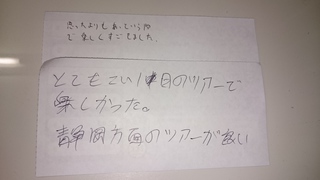 思ったよりも
で楽しくすごせました。
とてもこい1日のツアーで
楽しかった。
静岡方面のツアーが多い